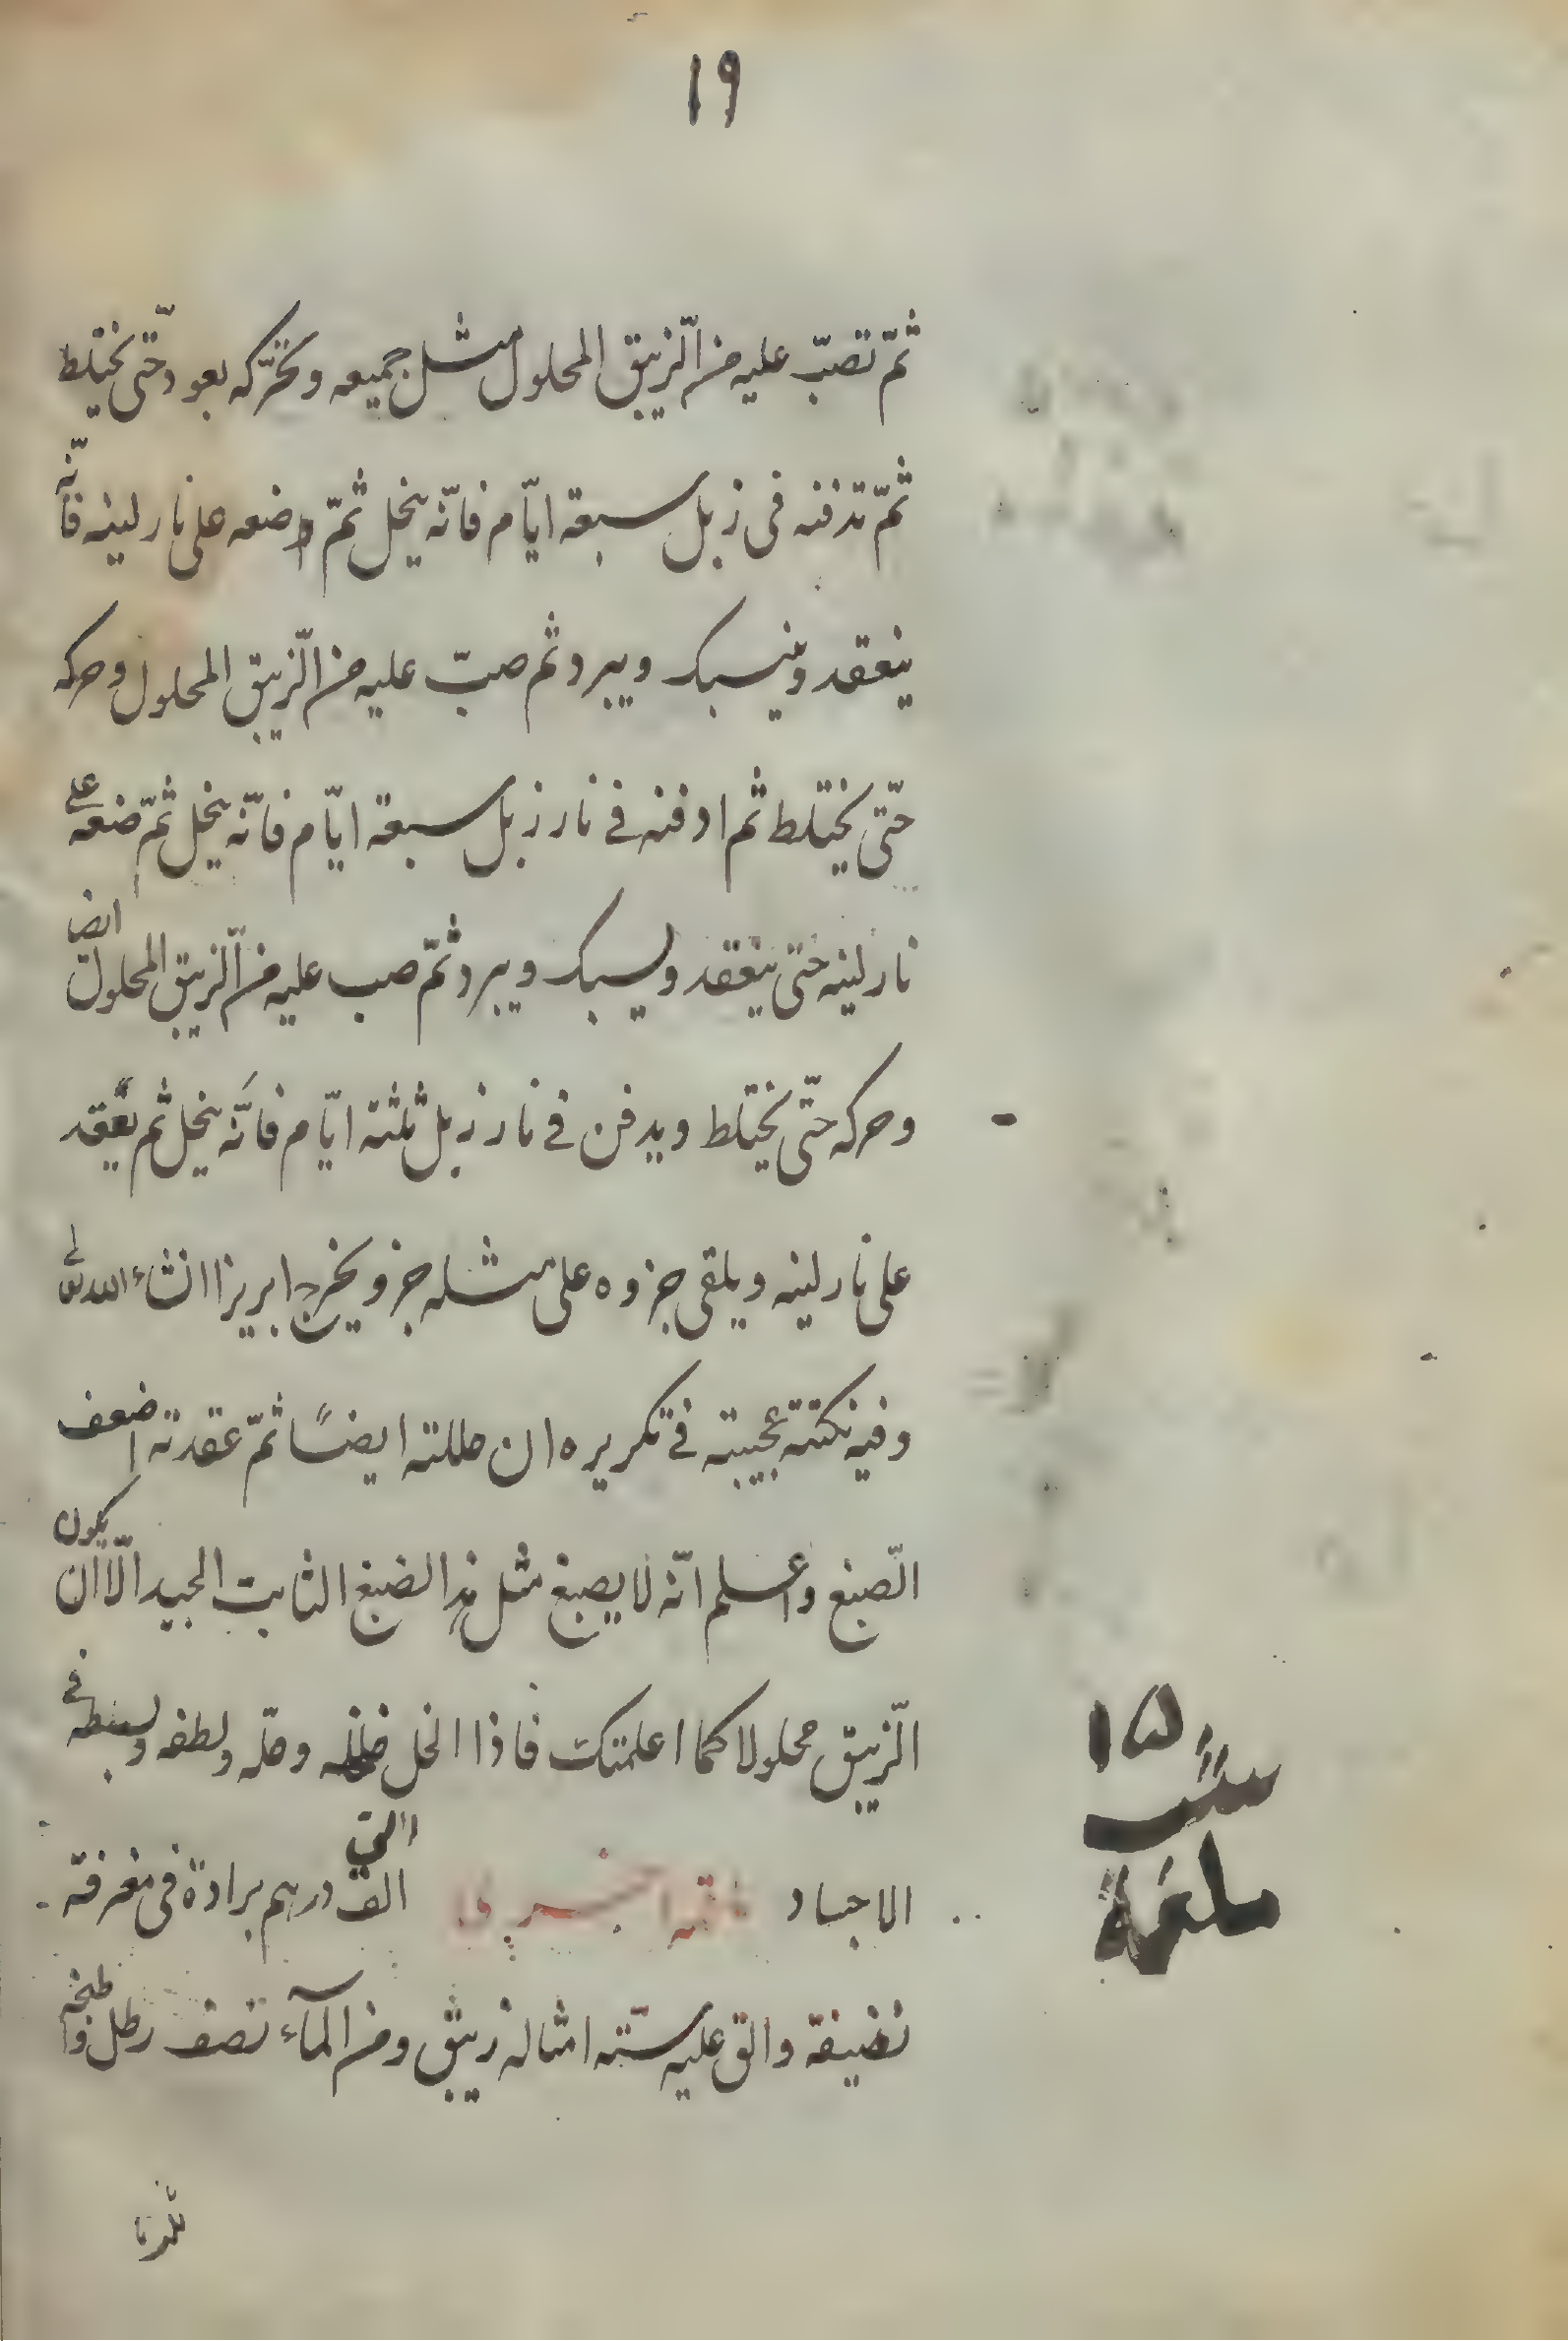 ١٩
ثمّ تصبّ عليه من الّزيبق المحلول مثل جميعه وتحرّكه بعود حتّى يختلط
ثمّ تدفنه فى زبل سبعة ايّام فانّه ينحل ثمّ ضعه على نار لينه فانّه
ينعقد وينسبك ويبرد ثم صبّ عليه من الّزيبق المحلول وحركه
حتّى يختلط ثم ادفنه فے نار زبل سبعة ايّام فانّه ينحل ثمّ ضعه على
نار لينه حتى ينعقد وليسبك ويبرد ثمّ صب عليه من الّزيبق المحلول ايض
وحركه حتّى يختلط ويدفن فے نار زبل ثلثة ايّام فانّه ينحل ثم يعقد
على نار لينه ويلقى جزوه على مثله جزو يخرج ابريزا انشاء الله تعالى
وفيه نكتة عجيبة فے تكريره ان حللته ايضًا ثمّ عقدته اضعف
الّصبغ واعلم انّه لا يصبغ مثل هذا الصبغ الثابت الجيد الّا ان يكون
الّزيبق محلولا كما اعلمتك فاذا انحل وحلّه ولطفه وبسطه فے
الاجساد الق درهم برادة فى مغرفة
نضيفة والق عليه ستّه امثاله زيبق ومن المآء نصف رطل واطبخه
١٥